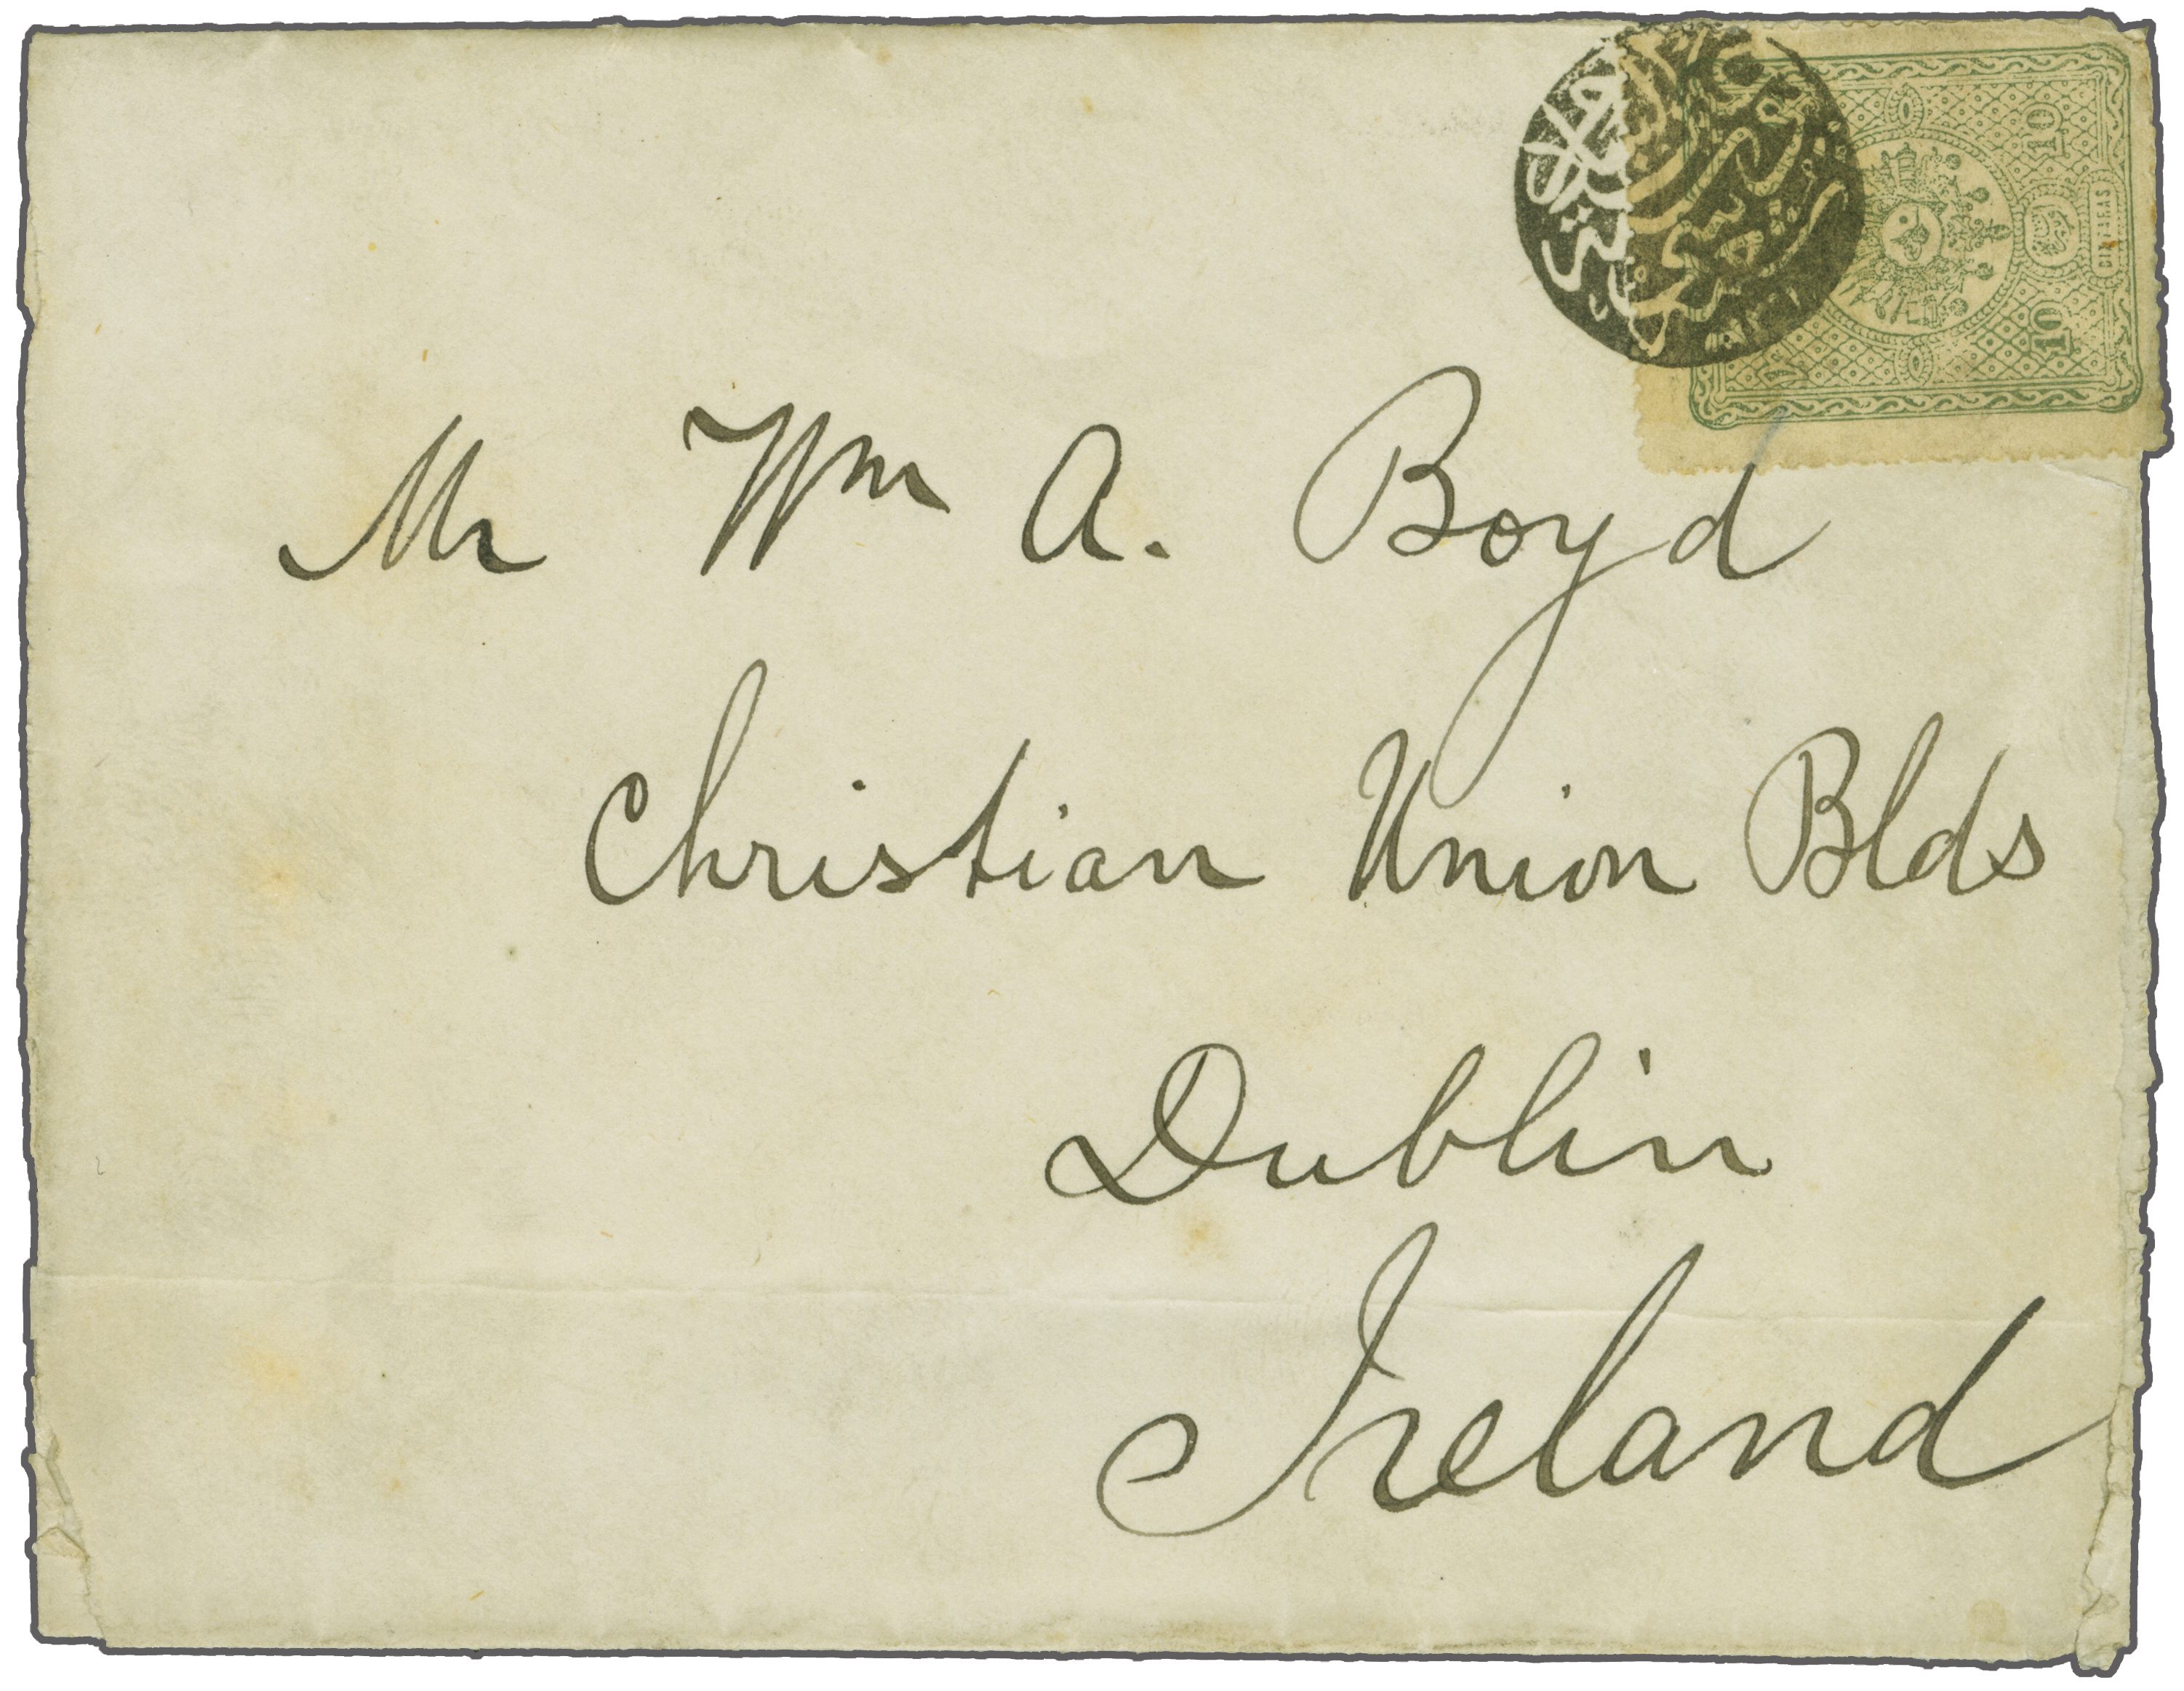 10 10
CIN PARAS
Mr Wm A. Boyd
Christian Union Blds
Dublin
Ireland